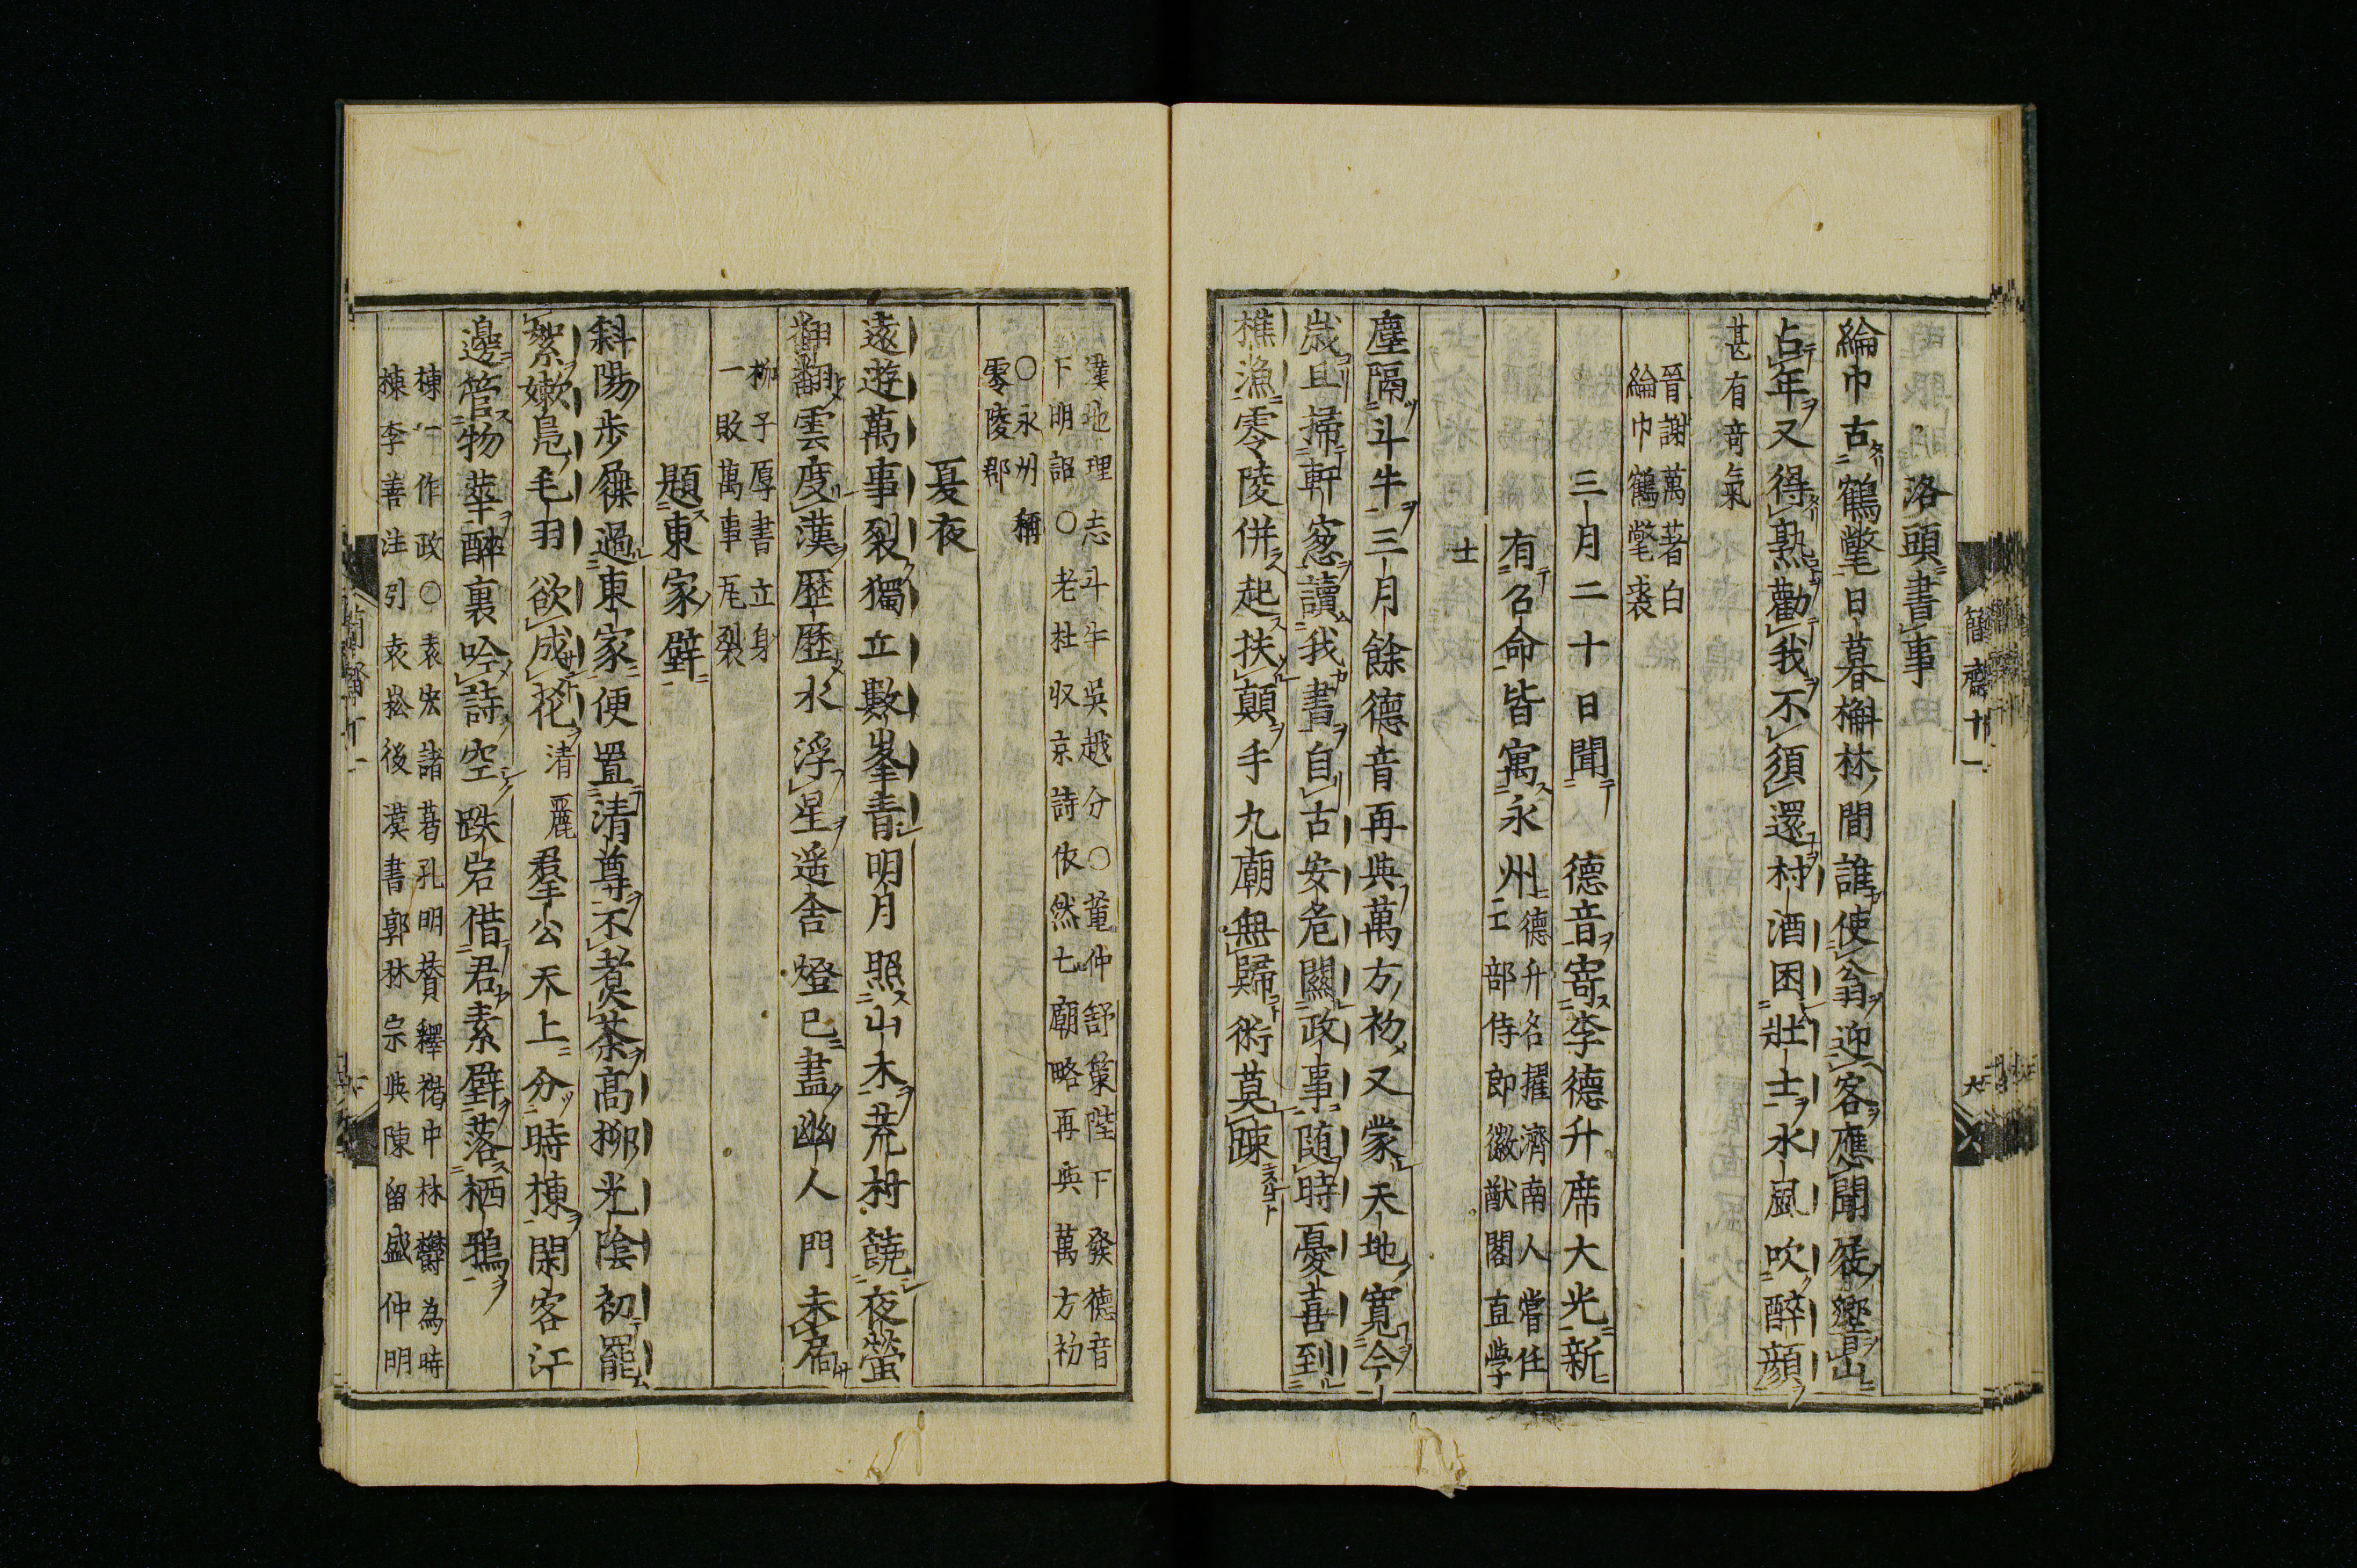 簡齋十一
洛頭書事
綸巾古鶴氅日暮槲林間誰使翁迎客應聞筇響山
占年又得熟勸我不須還村酒困壯士水風吹醉顔
甚有奇氣
晉謝萬著白
綸巾鶴氅裘
三月二十日聞德音寄李德升席大光新
有召命皆寓永州
德升名擢濟南人嘗任
工部侍郎徽猷閣直學
士
塵隔斗牛三月餘德音再與萬方初又蒙天地寬今
歳且掃軒窓讀我書自古安危關政事随時憂喜到
樵漁零陵併起扶顛手九廟無歸術莫踈
漢地理志斗牛吳越分○董仲舒策陛下發德音
下明詔○老杜収京詩依然七廟略再與萬方初
○永州稱
零陵郡
夏夜
遠遊萬事裂獨立數峯青明月照山木荒村饒夜螢
翻翻雲度漢歴歴水浮星遥舎燈已盡幽人門未扃
柳子厚書立身
一敗萬事瓦裂
題東家壁
斜陽歩屧過東家便置清尊不煮茶高柳光陰初罷
絮嫩鳬毛羽欲成花
清麗
羣公天上分時棟閑客江
邊管物華醉裏吟詩空跌宕借君素壁落栖鴉
棟一作政○袁宏諸葛孔明賛釋褐中林欝為時
棟李善注引袁崧後漢書郭林宗與陳留盛仲明